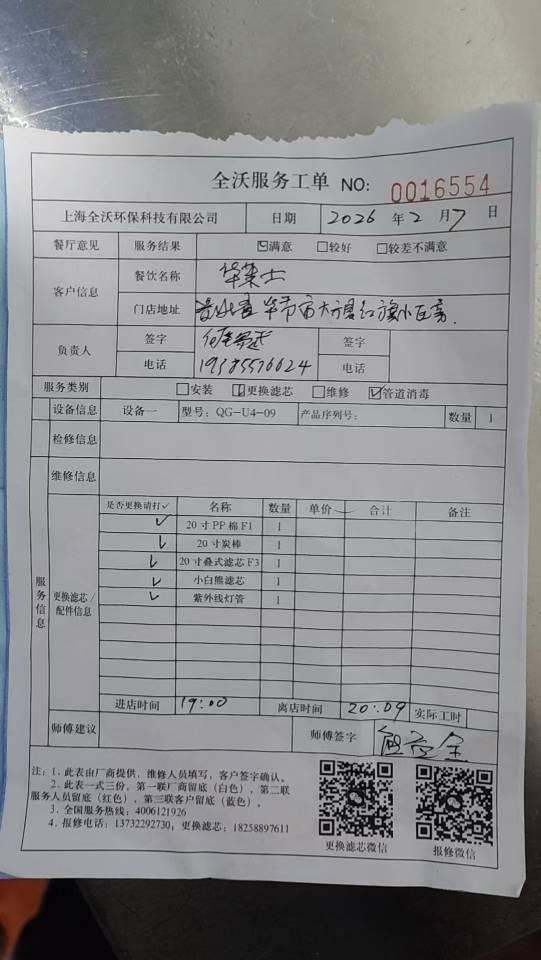 全沃服务工单 NO: 0016554
上海全沃环保科技有限公司 日期 2026 年 2 月 7 日
餐厅意见 服务结果 ☑满意 □较好 □较差不满意
客户信息 餐饮名称 华莱士
门店地址 贵州省毕节市大方县红旗小区旁.
负责人 签字 签字
电话 19385576624 电话
服务类别 □安装 ☑更换滤芯 □维修 ☑管道消毒
设备信息 设备一 型号: QG-U4-09 产品序列号: 数量 1
检修信息
维修信息
服务信息
更换滤芯/配件信息
是否更换请打✓ 名称 数量 单价 合计 备注
✓ 20寸PP棉F1 1
✓ 20寸炭棒 1
✓ 20寸叠式滤芯F3 1
✓ 小白熊滤芯 1
✓ 紫外线灯管 1
进店时间 19:00 离店时间 20:09 实际工时
师傅建议 师傅签字
注: 1. 此表由厂商提供, 维修人员填写, 客户签字确认。
2. 此表一式三份, 第一联厂商留底 (白色), 第二联
服务人员留底 (红色), 第三联客户留底 (蓝色)。
3. 全国服务热线: 4006121926
4. 报修电话: 13732292730, 更换滤芯: 18258897611
更换滤芯微信 报修微信